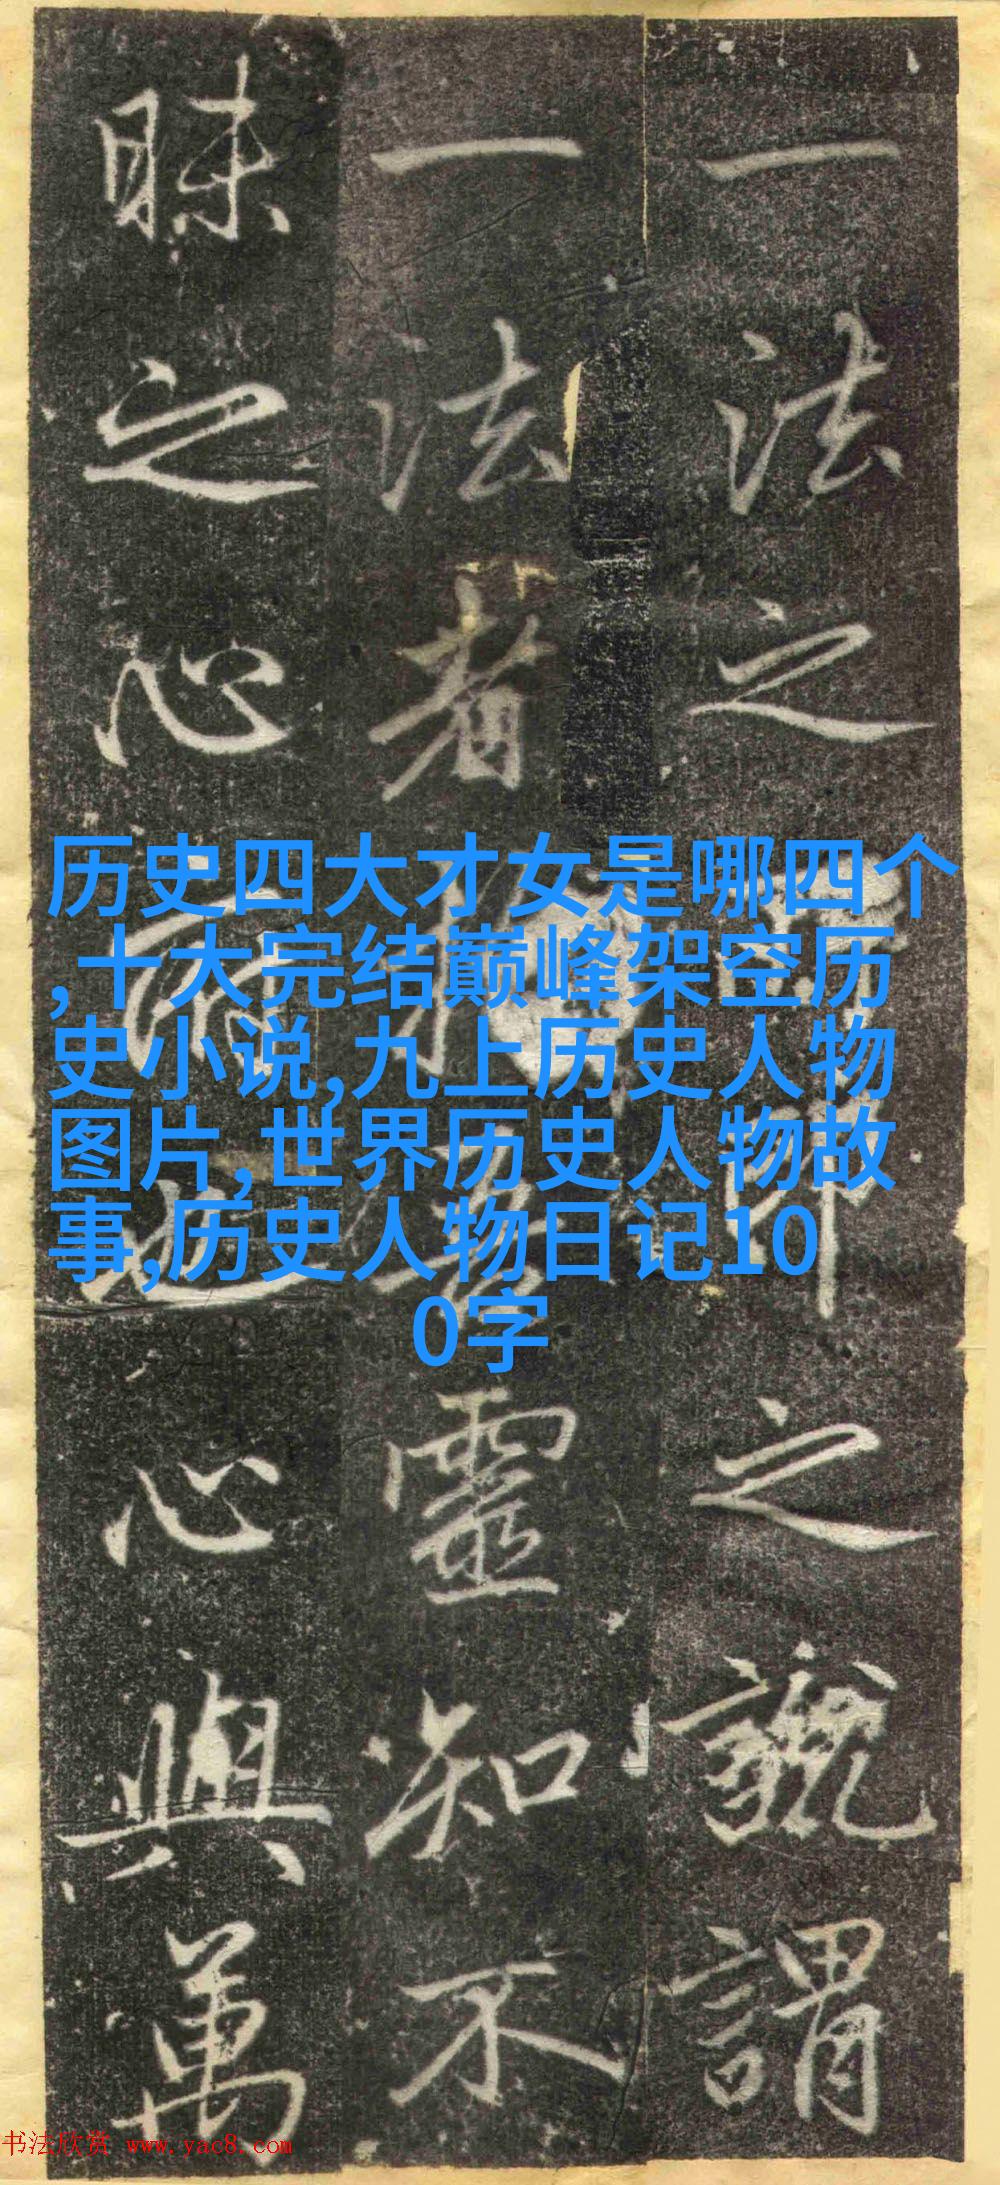 一法之之說謂
一法者靈知不
昧之心也心與萬
历史四大才女是哪四个
,十大完结巅峰架空历
史小说,九上历史人物
图片,世界历史人物故
事,历史人物日记10
0字
书法欣赏 www.yac8.com